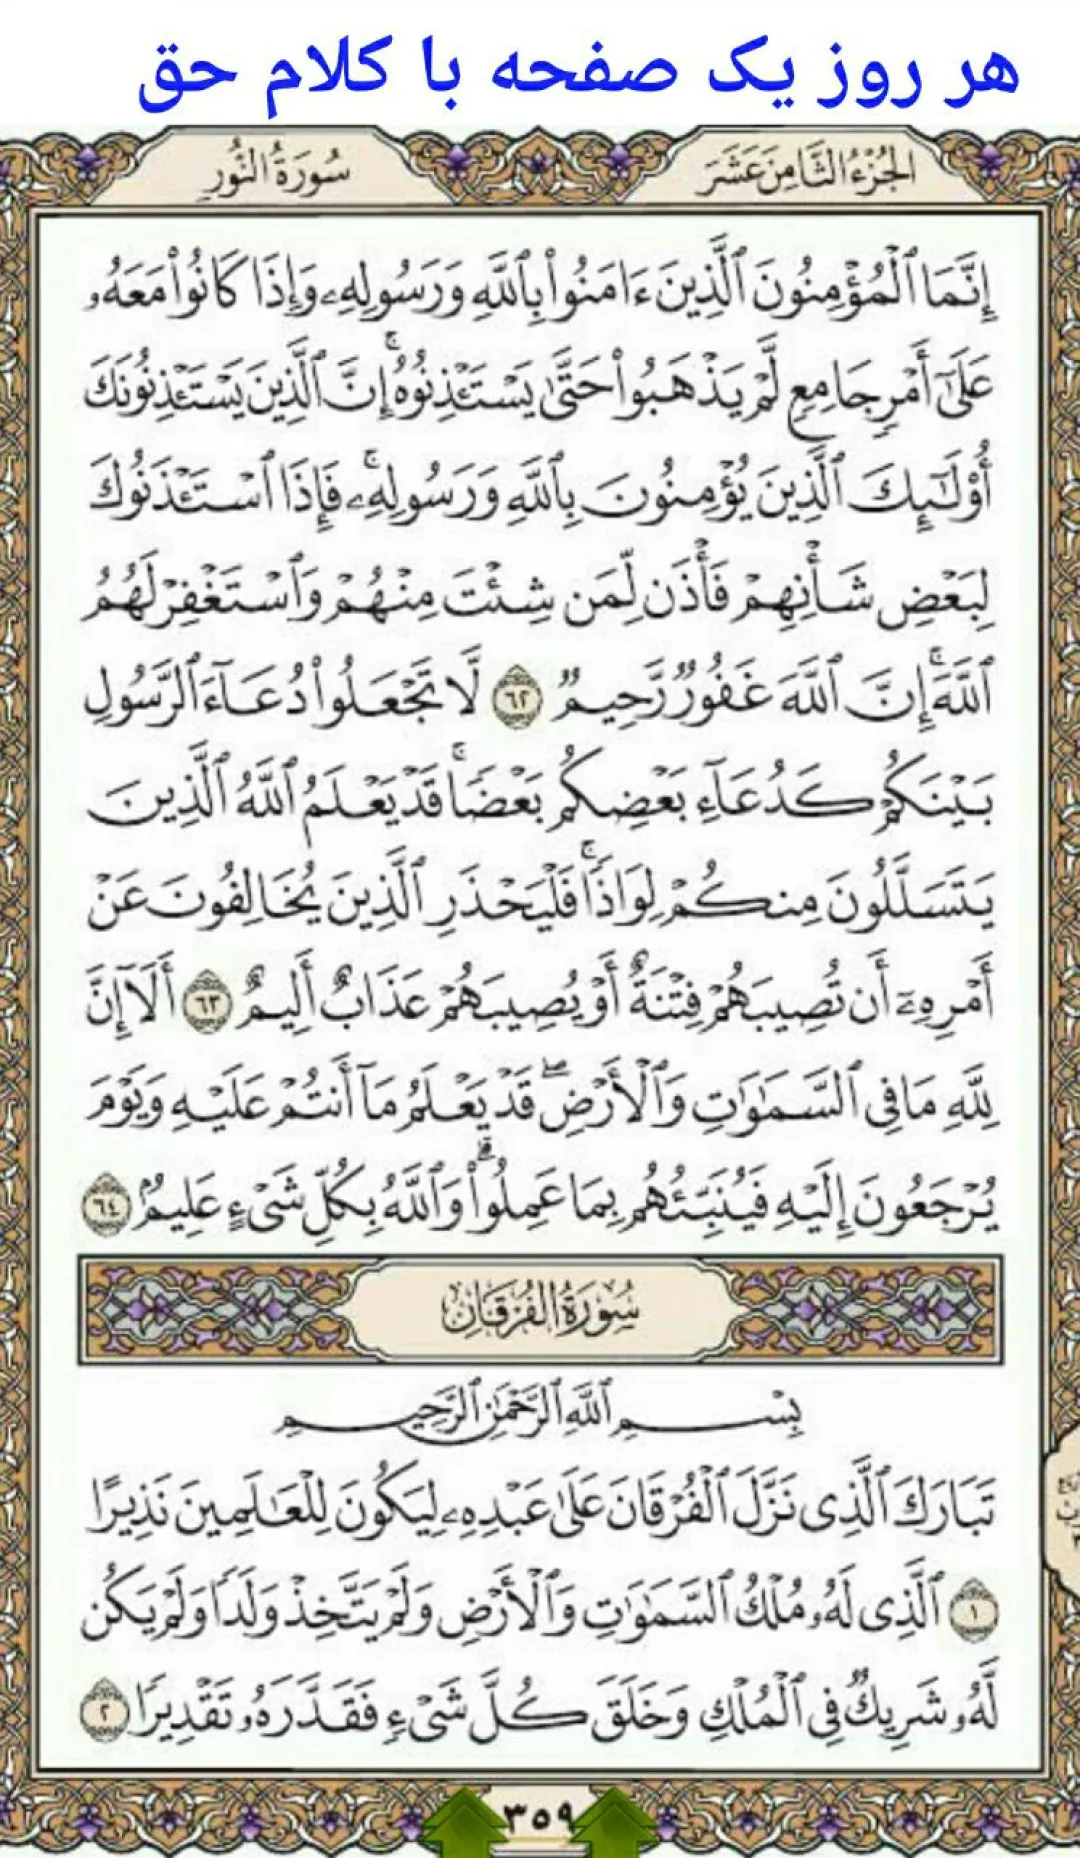 هر روز یک صفحه با کلام حق
الجُزْءُ الثَّامِنَ عَشَرَ
سُورَةُ النُّورِ
إِنَّمَا ٱلْمُؤْمِنُونَ ٱلَّذِينَ ءَامَنُوا۟ بِٱللَّهِ وَرَسُولِهِۦ وَإِذَا كَانُوا۟ مَعَهُۥ
عَلَىٰٓ أَمْرٍ جَامِعٍ لَّمْ يَذْهَبُوا۟ حَتَّىٰ يَسْتَـْٔذِنُوهُ ۚ إِنَّ ٱلَّذِينَ يَسْتَـْٔذِنُونَكَ
أُو۟لَـٰٓئِكَ ٱلَّذِينَ يُؤْمِنُونَ بِٱللَّهِ وَرَسُولِهِۦ ۚ فَإِذَا ٱسْتَـْٔذَنُوكَ
لِبَعْضِ شَأْنِهِمْ فَأْذَن لِّمَن شِئْتَ مِنْهُمْ وَٱسْتَغْفِرْ لَهُمُ
ٱللَّهَ ۚ إِنَّ ٱللَّهَ غَفُورٌ رَّحِيمٌ ٦٢ لَّا تَجْعَلُوا۟ دُعَآءَ ٱلرَّسُولِ
بَيْنَكُمْ كَدُعَآءِ بَعْضِكُم بَعْضًا ۚ قَدْ يَعْلَمُ ٱللَّهُ ٱلَّذِينَ
يَتَسَلَّلُونَ مِنكُمْ لِوَاذًا ۚ فَلْيَحْذَرِ ٱلَّذِينَ يُخَالِفُونَ عَنْ
أَمْرِهِۦٓ أَن تُصِيبَهُمْ فِتْنَةٌ أَوْ يُصِيبَهُمْ عَذَابٌ أَلِيمٌ ٦٣ أَلَآ إِنَّ
لِلَّهِ مَا فِى ٱلسَّمَـٰوَٰتِ وَٱلْأَرْضِ ۖ قَدْ يَعْلَمُ مَآ أَنتُمْ عَلَيْهِ وَيَوْمَ
يُرْجَعُونَ إِلَيْهِ فَيُنَبِّئُهُم بِمَا عَمِلُوا۟ ۗ وَٱللَّهُ بِكُلِّ شَىْءٍ عَلِيمٌۢ ٦٤
سُورَةُ الفُرْقَانِ
بِسْمِ ٱللَّهِ ٱلرَّحْمَـٰنِ ٱلرَّحِيمِ
تَبَارَكَ ٱلَّذِى نَزَّلَ ٱلْفُرْقَانَ عَلَىٰ عَبْدِهِۦ لِيَكُونَ لِلْعَـٰلَمِينَ نَذِيرًا
١ ٱلَّذِى لَهُۥ مُلْكُ ٱلسَّمَـٰوَٰتِ وَٱلْأَرْضِ وَلَمْ يَتَّخِذْ وَلَدًا وَلَمْ يَكُن
لَّهُۥ شَرِيكٌ فِى ٱلْمُلْكِ وَخَلَقَ كُلَّ شَىْءٍ فَقَدَّرَهُۥ تَقْدِيرًا ٢
٣٥٩